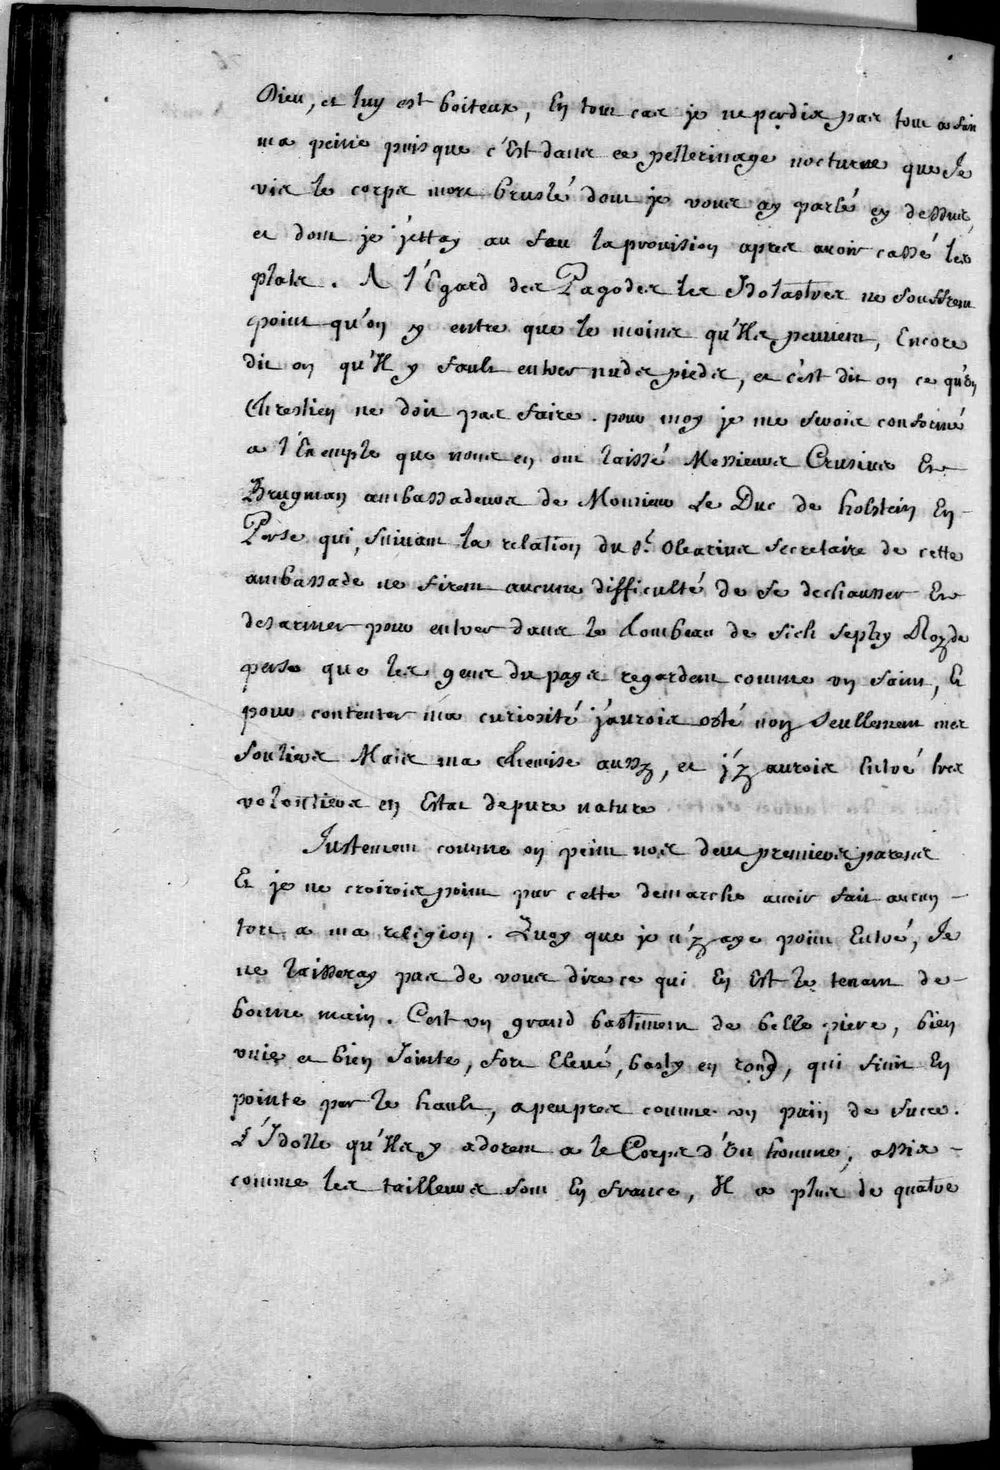 Dieu, et luy est boiteux, En tout cas je ne perdis pas tout a fait
ma peine puis que c'Est dans ce pellerinage nocturne que Je
vis le corps mort bruslé dont je vous ay parlé cy dessus,
et dont je jettay au feu la provision apres avoir cassé les
plats. A l'Egard des Pagodes les Idolastres ne souffrent
point qu'on y entre que le moins qu'Ils peuvent, Encore
dit on qu'Il y fault entrer nuds pieds, et c'est dit on ce qu'Un
Chrestien ne doit pas faire. pour moy je me serois conformé
a l'Exemple que nous en ont laissé Messieurs Crusius Et
Brugman ambassadeurs de Monsieur Le Duc de holstein En
Perse qui, suivant la relation du Sr. Olearius secretaire de cette
ambassade ne firent aucune difficulté de se dechausser Et
desarmer pour entrer dans le Tombeau de sich sephy Roy de
perse que les gens du pays regardent comme un saint, Et
pour contenter ma curiosité j'aurois osté non seullement mes
souliers Mais ma chemise aussy, et j'y aurois Entré tres
volontiers en Estat de pure nature
Justement comme on peint nos deux premiers parens
Et je ne croirois point par cette demarche avoir fait aucun
tort a ma religion. Quoy que je n'y aye point Entré, Je
ne laisseray pas de vous dire ce qui En Est le tenant de
bonne main. C'est un grand bastiment de belle piere, bien
unie et bien Jointe, fort Elevé, basty en rond, qui finit En
pointe par le hault, a peu pres comme un pain de sucre.
L'Idolle qu'Ils y adorent a le Corps d'Un homme, assis
comme les tailleurs sont En france, Il a plus de quatre